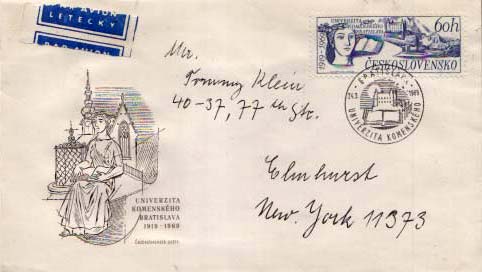 PAR AVION
LETECKY
PAR AVION
UNIVERZITA
KOMENSKÉHO
BRATISLAVA
1919-1969
60h
ČESKOSLOVENSKO
BRATISLAVA
24.3. 1969
UNIVERZITA KOMENSKÉHO
Mr.
Tommy Klein
40-37, 77 th Str.
Elmhurst
New York 11373
UNIVERZITA
KOMENSKÉHO
BRATISLAVA
1919-1969
Československá pošta